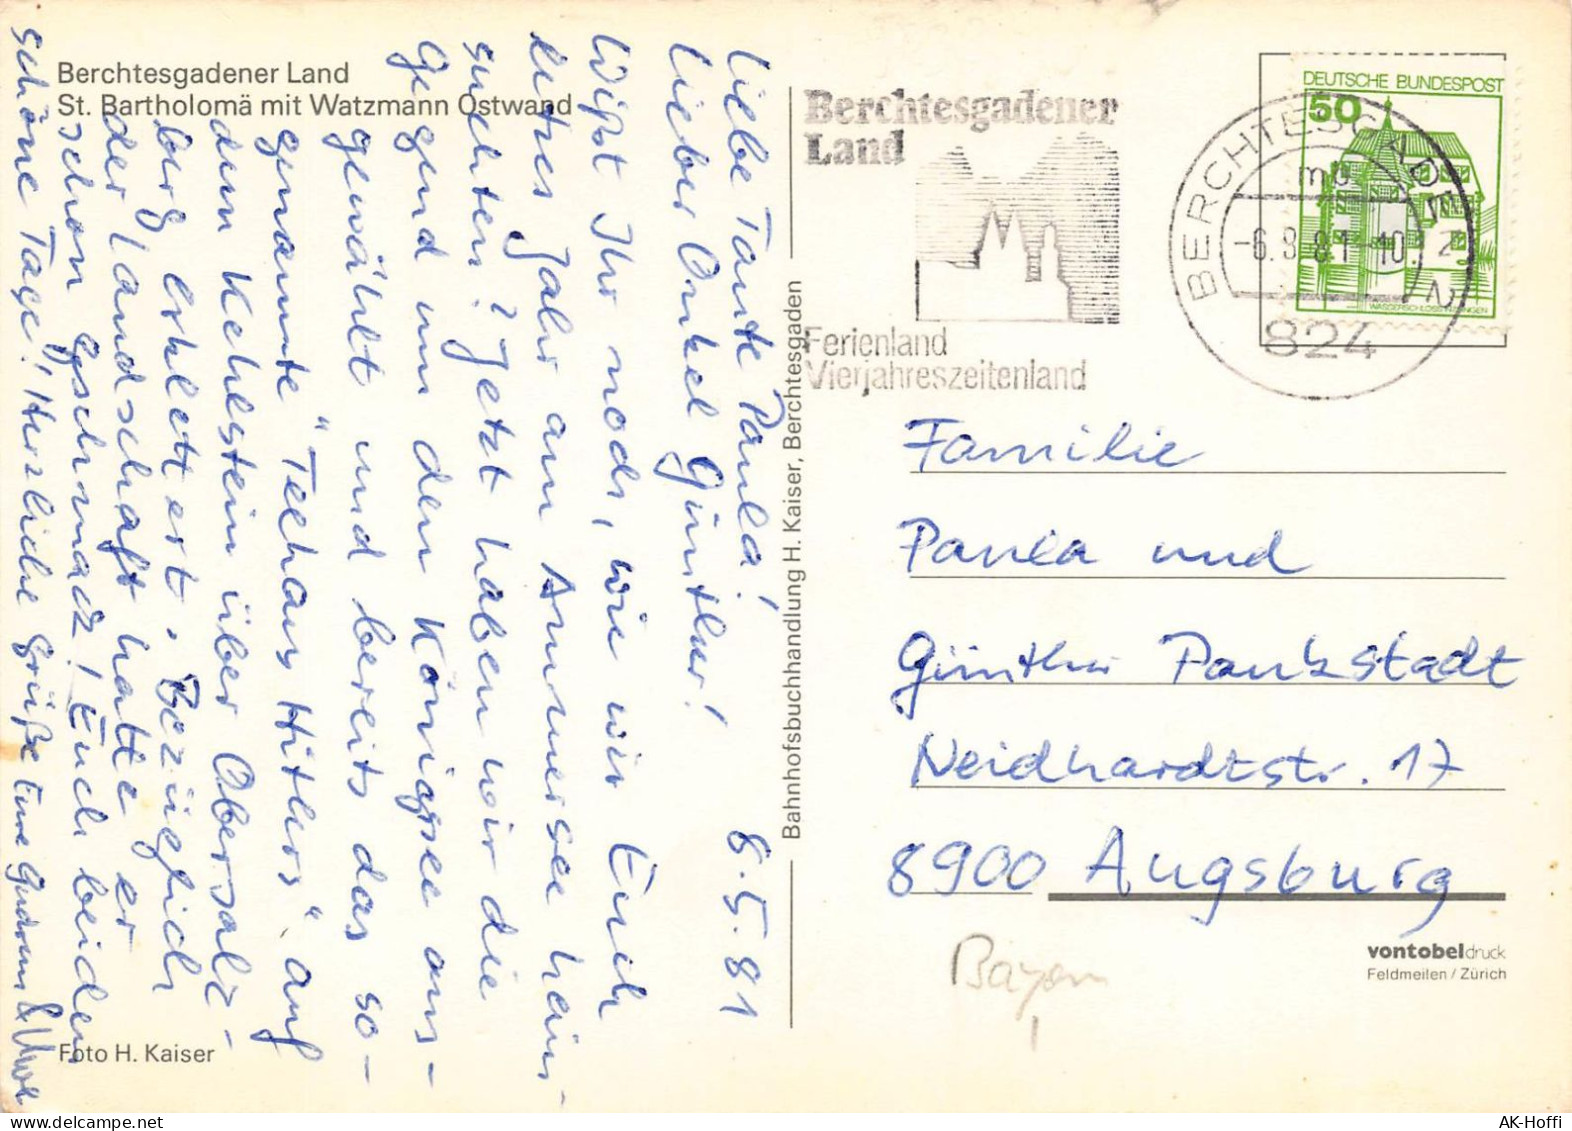 Berchtesgadener Land
St. Bartholomä mit Watzmann Ostwand
6.5.81
Liebe Tante Paula!
Lieber Onkel Günther!
Wißt Ihr noch, wie wir Euch
letztes Jahr am Ammersee heim-
suchten? Jetzt haben wir die
Gegend um den Königssee aus-
gewählt und bereits das so-
genannte "Teehaus Hitlers" auf
dem Kehlstein über Obersalz-
berg erklettert. Bezüglich
der Landschaft hatte er
schon Geschmack! Euch beiden
schöne Tage! Herzliche Grüße Eure Gudrun & Uwe
Foto H. Kaiser
Bahnhofsbuchhandlung H. Kaiser, Berchtesgaden
Berchtesgadener
Land
Ferienland
Vierjahreszeitenland
DEUTSCHE BUNDESPOST
50
WASSERSCHLOSS INZLINGEN
BERCHTESGADEN 2
mp
-6.8.81-10
824
Familie
Paula und
Günther Pankstadt
Neidhardtstr. 17
8900 Augsburg
Bayern
1
vontobeldruck
Feldmeilen / Zürich
AK-Hoffi